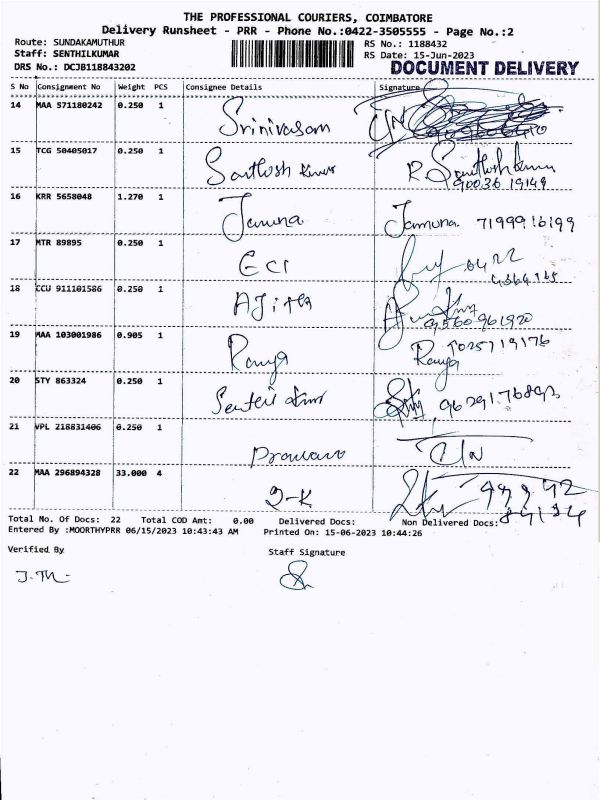 THE PROFESSIONAL COURIERS, COIMBATORE
Delivery Runsheet - PRR - Phone No.:0422-3505555 - Page No.:2
Route: SUNDAKAMUTHUR RS No.: 1188432
Staff: SENTHILKUMAR RS Date: 15-Jun-2023
DRS No.: DCJB118843202 DOCUMENT DELIVERY
S No Consignment No Weight PCS Consignee Details Signature
14 MAA 571180242 0.250 1 Srinivasan
15 TCG 50405017 0.250 1 Santhosh Kumar R. Santhosh Kumar
90036 19149
16 KRR 5658048 1.270 1 Jamuna Jamuna. 7199916199
17 MTR 89895 0.250 1 GCI
18 CCU 911101586 0.250 1 Ajitha
9560961920
19 MAA 103001986 0.905 1 Ramya Ramya
20 STY 863324 0.250 1
21 VPL 218831406 0.250 1
22 MAA 296894328 33.000 4
Total No. Of Docs: 22 Total COD Amt: 0.00 Delivered Docs: Non Delivered Docs:
Entered By :MOORTHYPRR 06/15/2023 10:43:43 AM Printed On: 15-06-2023 10:44:26
Verified By Staff Signature